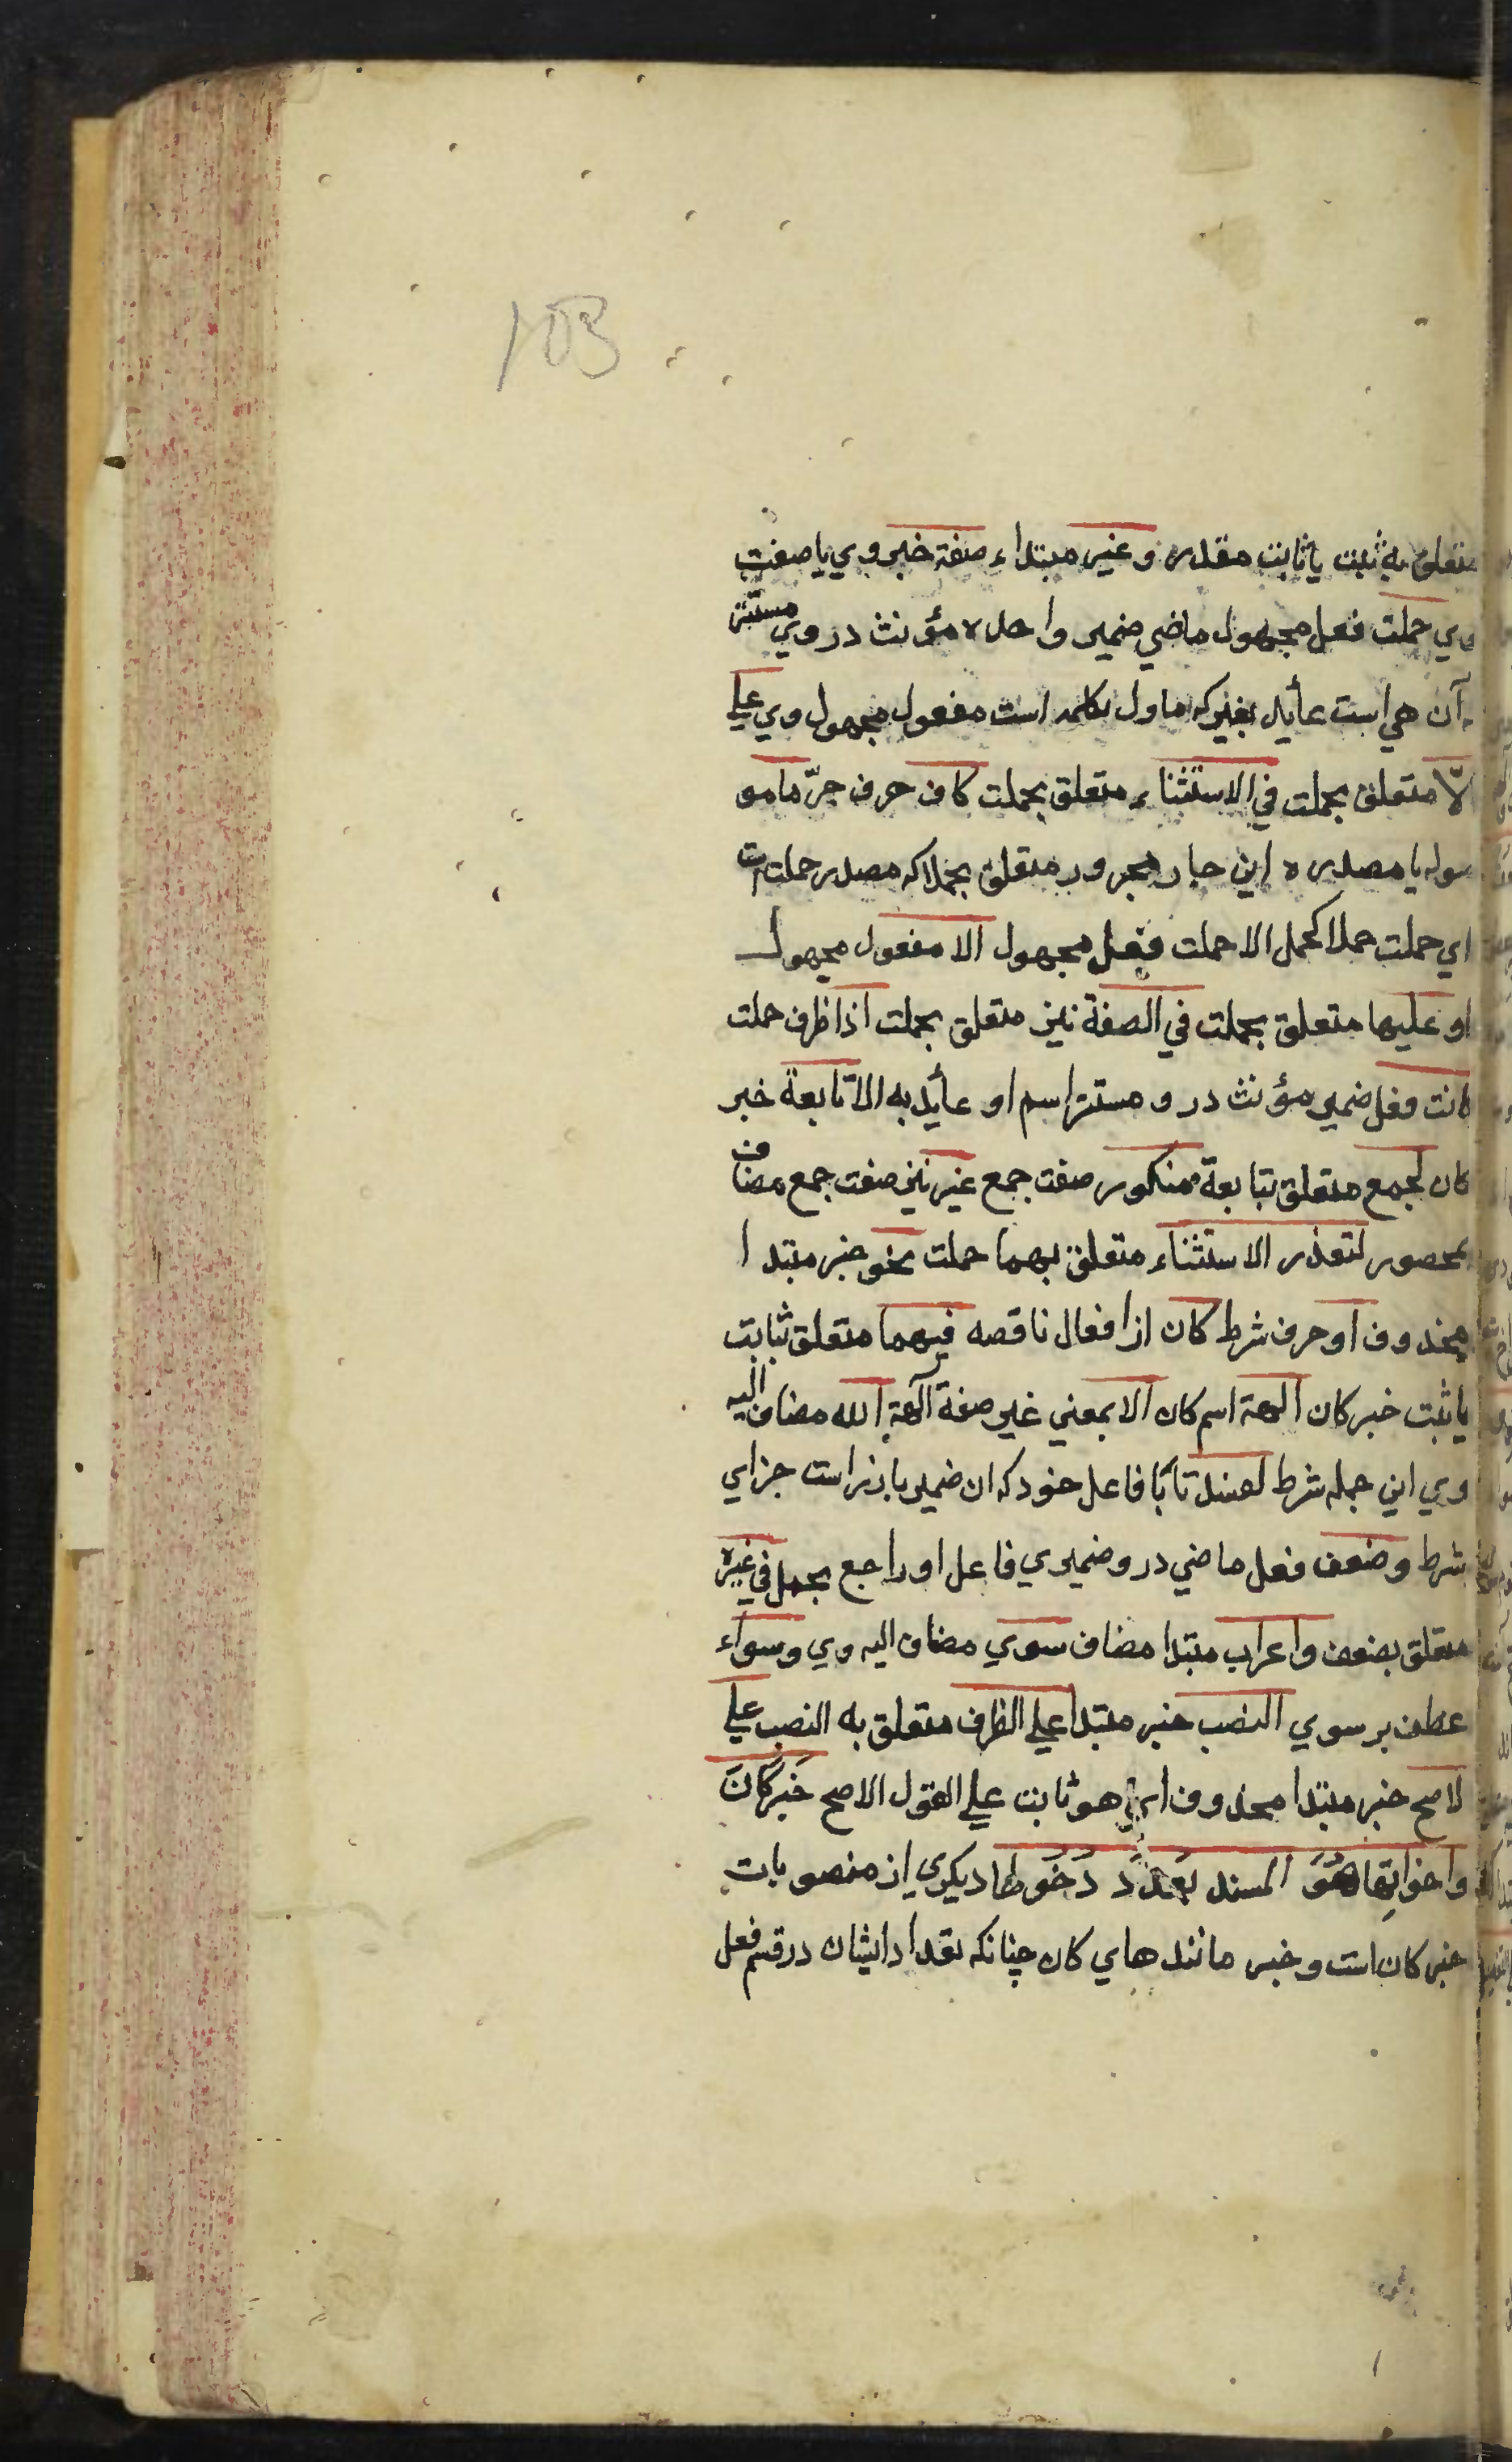 103
متعلق به ثبت يا ثابت مقدره و غير مبتداء صفة خبر وي يا صفت
وي حملت فعل مجهول ماضي ضمير واحده مؤنث در وي مستتر
آن هي است عأيد بغير كه ماول بكلمه است مفعول مجهول وي علي
الّا متعلق بحملت في الاستثناء متعلق بحملت كاف حرف جرّ ما مو
صوله يا مصدره اين جار مجرور متعلق بحملا كه مصدر حملت است
اي حملت حملا كحمل الا حملت فعل مجهول الا مفعول مجهول
او عليها متعلق بحملت في الصفة نيز متعلق بحملت اذا ظرف حملت
كانت فعل ضمير مؤنث در و مستتر اسم او عأيد به الا تابعة خبر
كان لجمع متعلق بتابعة منكور صفت جمع غير نيز صفت جمع مضاف
محصور لتعذر الاستثناء متعلق بهما حملت نحو خبر مبتدا
محذوف او حرف شرط كان از افعال ناقصه فيهما متعلق ثابت
يا ثبت خبر كان الهة اسم كان الا بمعني غير صفة آلهة الله مضاف اليه
وي اين جمله شرط لفسدتا با فاعل خود كه ان ضمير بارز است جزاي
شرط وضعف فعل ماضي در و ضميري فاعل او راجع بحمل في غيره
متعلق بضعف واعراب مبتدا مضاف سوي مضاف اليه وي وسواء
عطف بر سوي النصب خبر مبتدا علي الظرف متعلق به النصب علي
الاصح خبر مبتدا محذوف اي هو ثابت علي القول الاصح خَبَر كَانَ
واخواتِها هُوَ المسند بَعْدَ دُخُولها ديكري از منصوبات
خبر كان است وخبر مانند هاي كان چنانكه تعداد ايشان در قسم فعل